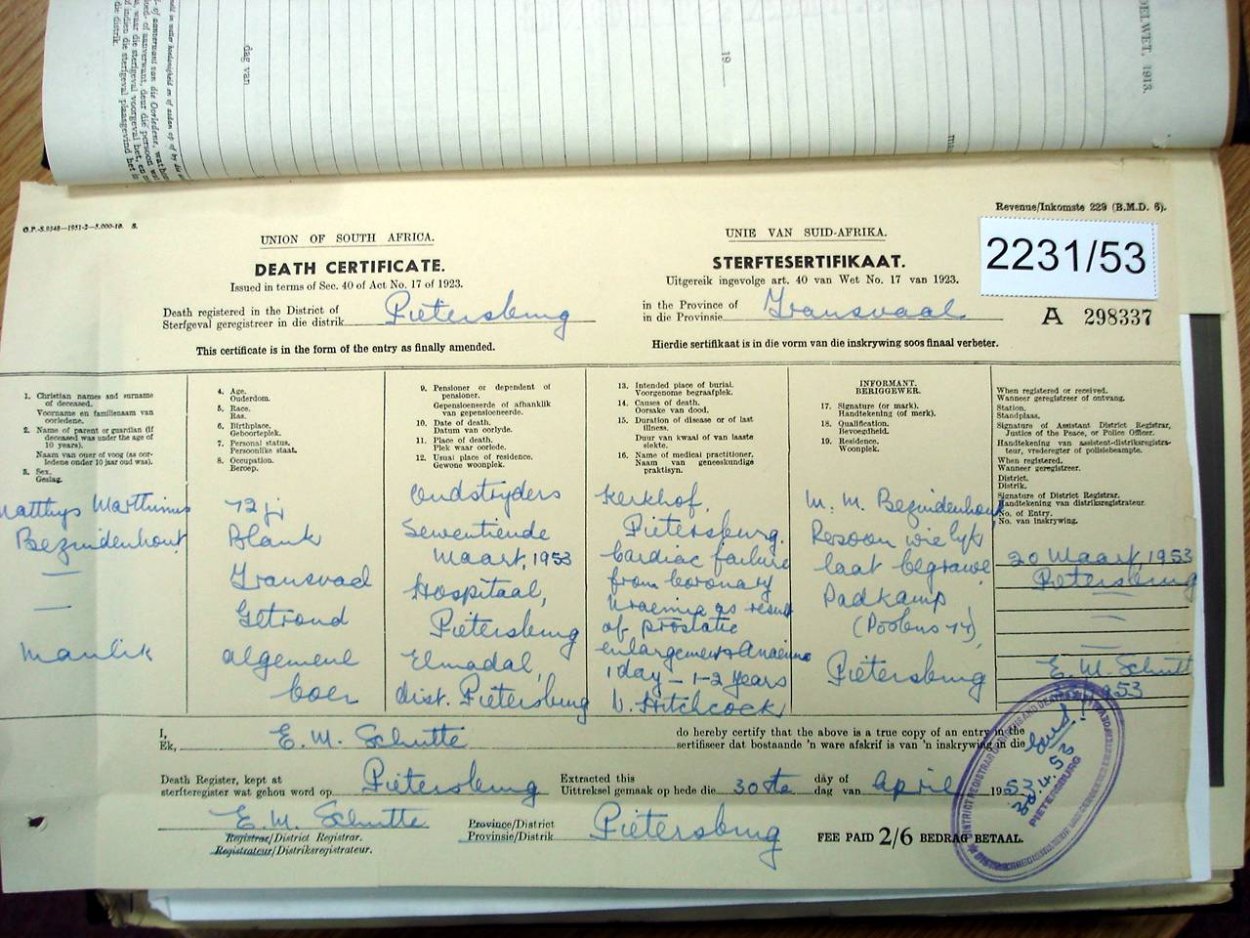 DELWET, 1913.
19
dag van
O.P.-S.9348—1951-2—5,000-10. S.
Revenue/Inkomste 229 (B.M.D. 6).
UNION OF SOUTH AFRICA.
UNIE VAN SUID-AFRIKA.
2231/53
DEATH CERTIFICATE.
STERFTESERTIFIKAAT.
Issued in terms of Sec. 40 of Act No. 17 of 1923.
Uitgereik ingevolge art. 40 van Wet No. 17 van 1923.
Death registered in the District of
Sterfgeval geregistreer in die distrik Pietersburg
in the Province of
in die Provinsie Transvaal
A 298337
This certificate is in the form of the entry as finally amended.
Hierdie sertifikaat is in die vorm van die inskrywing soos finaal verbeter.
1. Christian names and surname
of deceased.
Voorname en familienaam van
oorledene.
2. Name of parent or guardian (if
deceased was under the age of
10 years).
Naam van ouer of voog (as oor-
ledene onder 10 jaar oud was).
3. Sex.
Geslag.
Matthys Marthinus
Bezuidenhout
—
—
Manlik
4. Age.
Ouderdom.
5. Race.
Ras.
6. Birthplace.
Geboorteplek.
7. Personal status.
Persoonlike staat.
8. Occupation.
Beroep.
72 jr
Blank
Transvaal
Getroud
algemene
boer
9. Pensioner or dependent of
pensioner.
Gepensioeneerde of afhanklik
van gepensioeneerde.
10. Date of death.
Datum van oorlyde.
11. Place of death.
Plek waar oorlede.
12. Usual place of residence.
Gewone woonplek.
Oudstryders
Sewentiende
Maart, 1953
Hospitaal,
Pietersburg
Elmadal,
dist. Pietersburg
13. Intended place of burial.
Voorgenome begraafplek.
14. Causes of death.
Oorsake van dood.
15. Duration of disease or of last
illness.
Duur van kwaal of van laaste
siekte.
16. Name of medical practitioner.
Naam van geneeskundige
praktisyn.
Kerkhof,
Pietersburg.
Cardiac failure
from coronary
Uraemia as result
of prostatic
enlargement & Anaemia
1 day — 1-2 years
V. Hitchcock
INFORMANT.
BERIGGEWER.
17. Signature (or mark).
Handtekening (of merk).
18. Qualification.
Bevoegdheid.
19. Residence.
Woonplek.
M. M. Bezuidenhout
Persoon wie lyk
laat begrawe
Padkamp
Pietersburg
When registered or received.
Wanneer geregistreer of ontvang.
Station.
Standplaas.
Signature of Assistant District Registrar,
Justice of the Peace, or Police Officer.
Handtekening van assistent-distriksregistra-
teur, vrederegter of polisiebeampte.
When registered.
Wanneer geregistreer.
District.
Distrik.
Signature of District Registrar.
Handtekening van distriksregistrateur.
No. of Entry.
No. van inskrywing.
20 Maart, 1953
Pietersburg
—
—
E. M. Schutte
I,
Ek, E. M. Schutte
do hereby certify that the above is a true copy of an entry in the
sertifiseer dat bostaande 'n ware afskrif is van 'n inskrywing in die
Death Register, kept at
sterfteregister wat gehou word op Pietersburg
Extracted this
Uittreksel gemaak op hede die 30ste
day of
dag van April 1953
E. M. Schutte
Registrar/District Registrar.
Registrateur/Distriksregistrateur.
Province/District
Provinsie/Distrik Pietersburg
FEE PAID 2/6 BEDRAG BETAAL.
30.4.53
PIETERSBURG